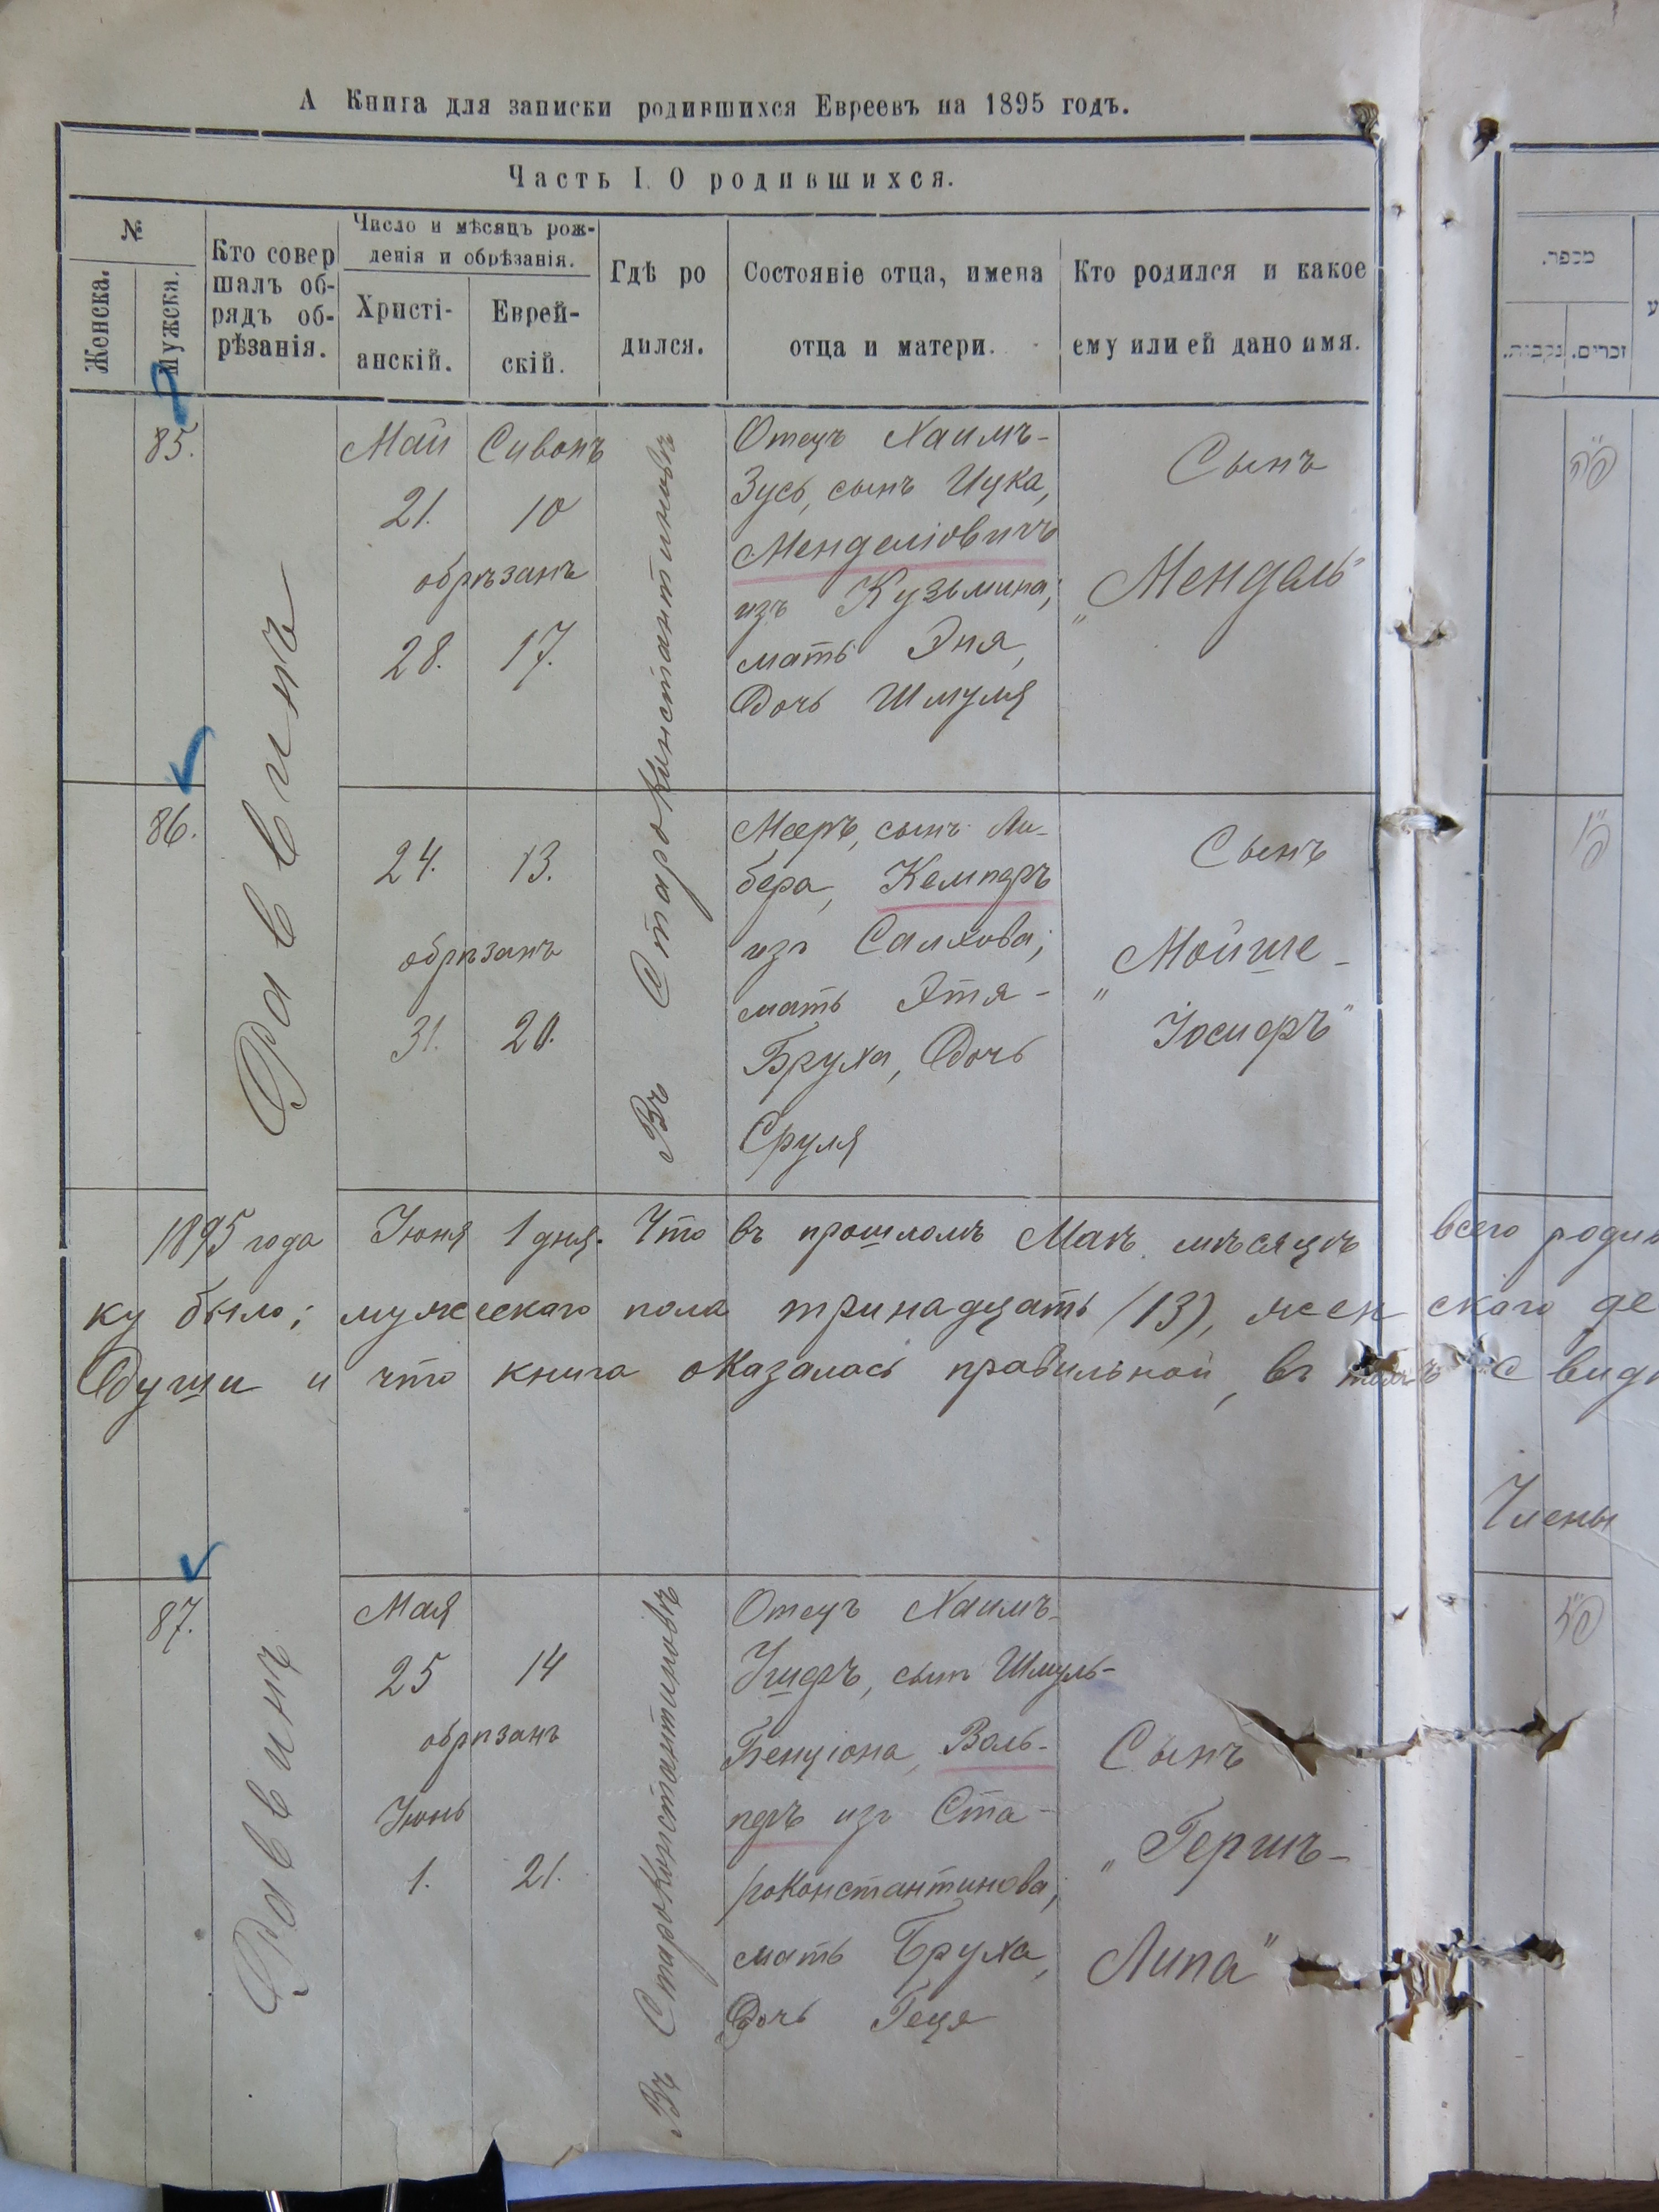 А Книга для записки родившихся Евреевъ на 1895 годъ.
Часть I. О родившихся.
№
Женска.
Мужска.
Кто совер
шалъ об-
рядъ об-
рѣзанія.
Число и мѣсяцъ рож-
денія и обрѣзанія.
Христі-
анскій.
Еврей-
скій.
Гдѣ ро
дился.
Состояніе отца, имена
отца и матери.
Кто родился и какое
ему или ей дано имя.
מספר.
זכרים.
נקבות.
85.
Раввинъ
Май
21.
обрѣзанъ
28.
Сивонъ
10
17.
Въ Староконстантиновѣ
Отецъ Хаимъ-
Зусь, сынъ Ицка,
Менделіовичъ
изъ Кузьмина;
мать Эня,
дочь Шмуля
Сынъ
„Мендель"
פ"ה
86.
24.
обрѣзанъ
31.
13.
20.
Мееръ, сынъ Ли-
бера, Кемперъ
изъ Салхова;
мать Этя-
Бруха, дочь
Сруля
Сынъ
„Мойше-
Іосифъ"
פ"ו
1895 года Іюня 1 дня. Что въ прошломъ Маѣ мѣсяцѣ всего родив
ку было; мужескаго пола тринадцать (13), женскаго де
души и что книга оказалась правильной, въ томъ свид
Члены
87.
Раввинъ
Мая
25
обрѣзанъ
Іюнь
1.
14
21.
Въ Староконстантиновѣ
Отецъ Хаимъ-
Ушеръ, сынъ Шмуль-
Бенціона, Валь-
перъ изъ Ста-
роконстантинова;
мать Бруха,
дочь Геця
Сынъ
„Гершъ-
Липа"
פ"ז